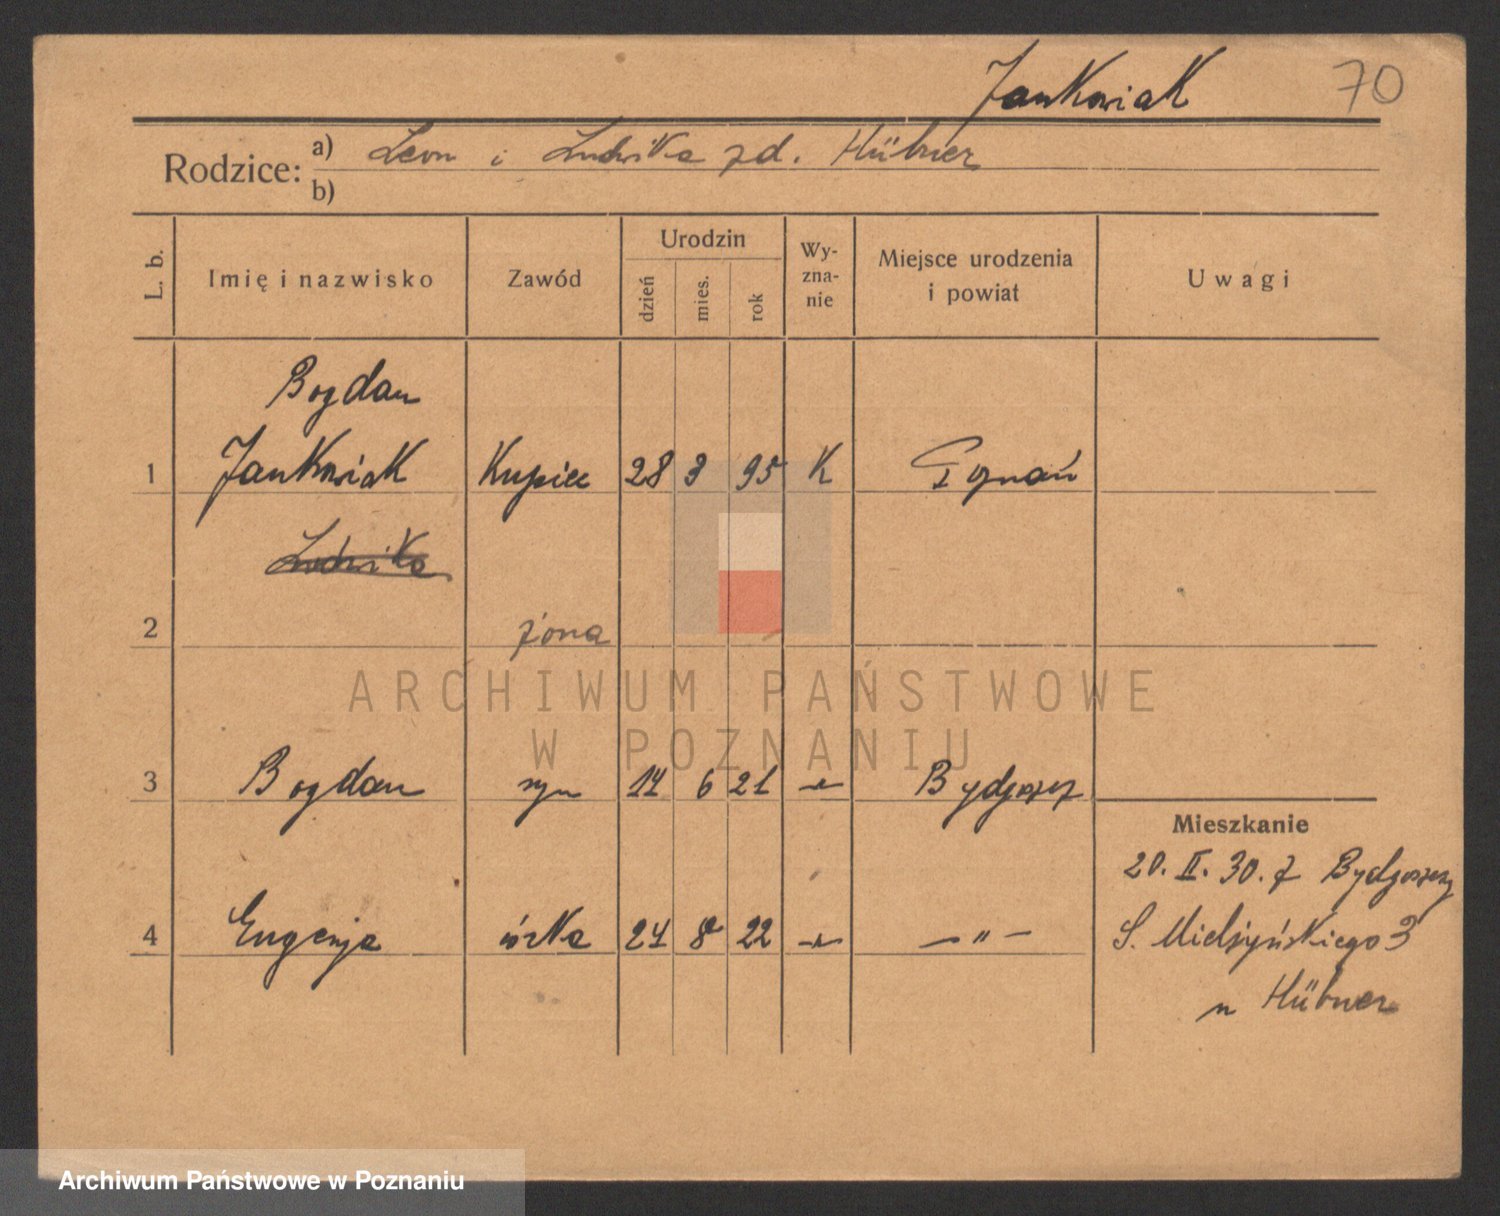 Jankowiak 70
Rodzice: a) Leon i Ludwika zd. Hübner
b)
L. b. Imię i nazwisko Zawód Urodzin dzień mies. rok Wy-zna-nie Miejsce urodzenia i powiat Uwagi
Bogdan
1 Jankowiak Kupiec 28 3 95 K Poznań
Ludwika
2 żona
3 Bogdan syn 14 6 21 -"- Bydgoszcz
Mieszkanie
20. II. 30. z Bydgoszczy
4 Eugenja córka 24 8 22 -"- -"- S. Mielżyńskiego 3
u Hübner
ARCHIWUM PAŃSTWOWE
W POZNANIU
Archiwum Państwowe w Poznaniu